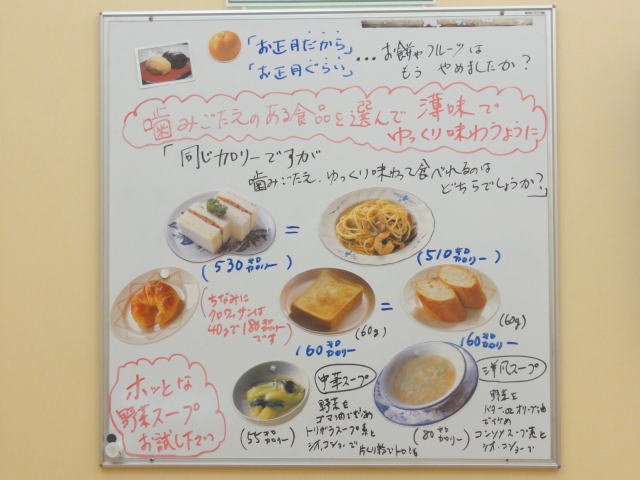 「お正月だから」
「お正月ぐらい」
… お餅やフルーツは
もう やめましたか?
噛みごたえのある食品を選んで 薄味で
ゆっくり味わうように
「同じカロリーですが
噛みごたえ、ゆっくり味わって食べれるのは
どちらでしょうか?」
=
(530キロカロリー)
(510キロカロリー)
(ちなみに
クロワッサンは
40gで180キロカロリー
です)
=
(60g)
(60g)
160キロカロリー
160キロカロリー
ホッとな
野菜スープ
お試し下さい
(55キロカロリー)
中華スープ
野菜を
ゴマ油で炒め
トリガラスープ素と
シオ、コショーで
片くり粉でトロミを
(80キロカロリー)
洋風スープ
野菜を
バターorオリーブ油
で炒め
コンソメスープ素と
シオ、コショーで